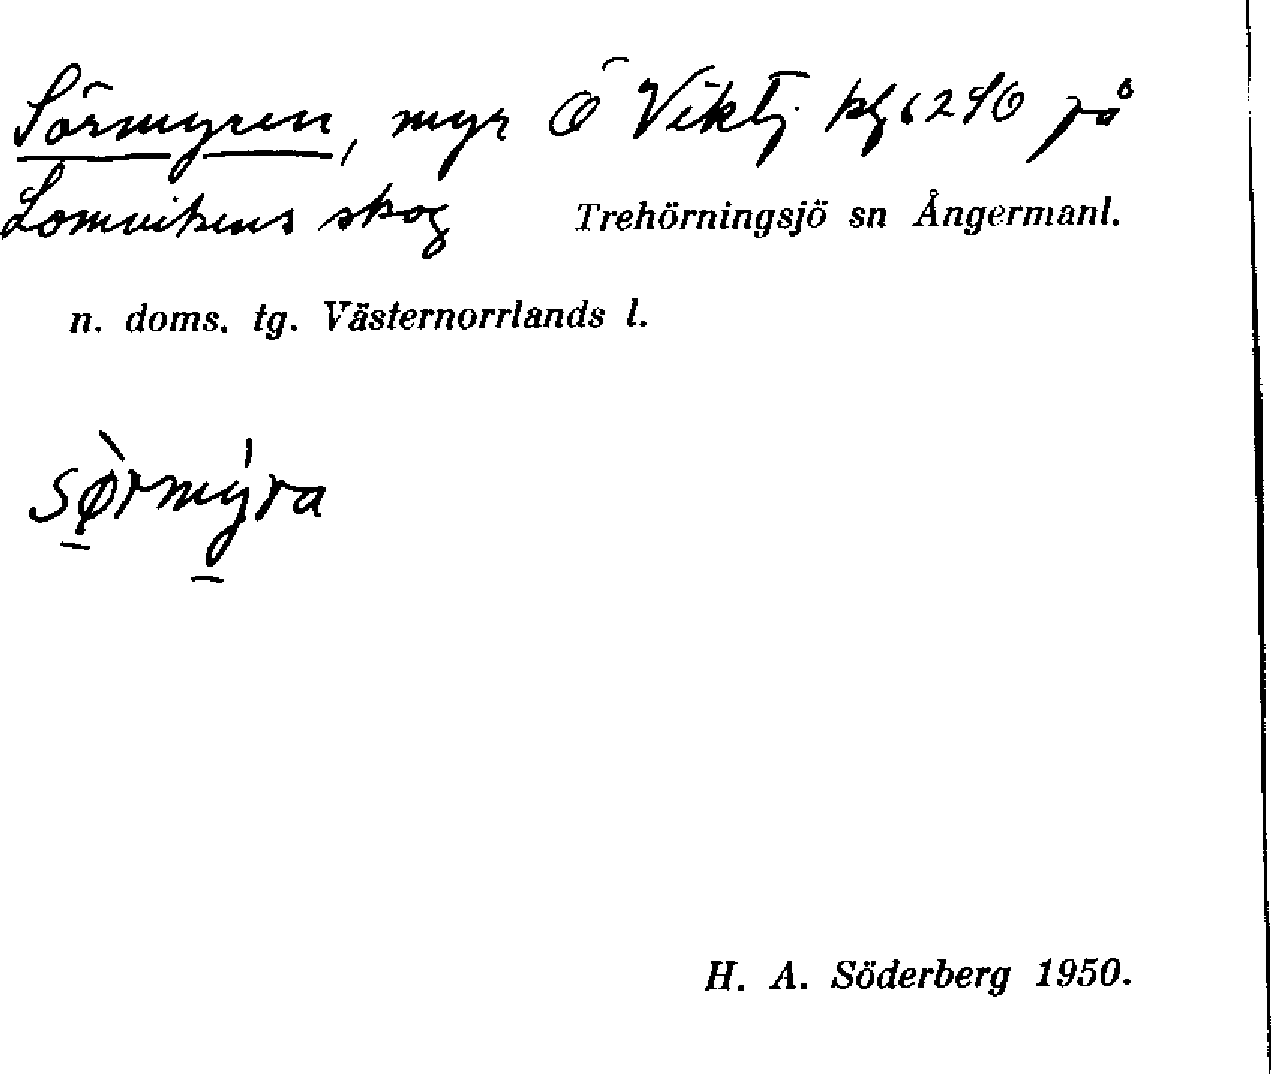 Sörmyren, myr Ö Viktj på
Lomvikens skog Trehörningsjö sn Ångermanl.
n. doms. tg. Västernorrlands l.
sø̀rmýra
H. A. Söderberg 1950.